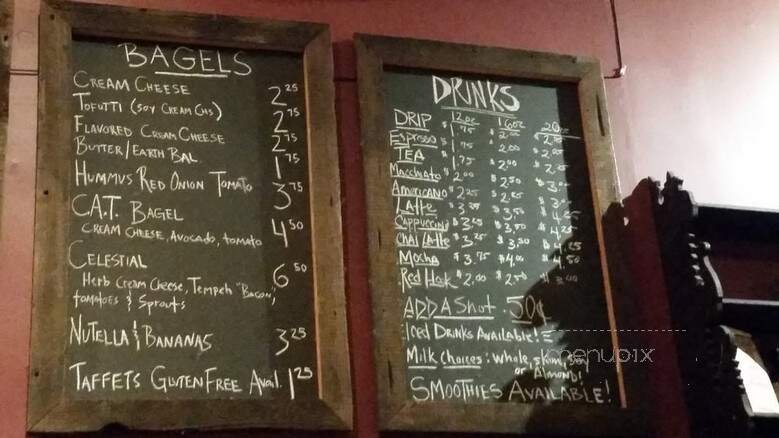 BAGELS
CREAM CHEESE 2 25
TOFUTTI (SOY CREAM CHS) 2 75
FLAVORED CREAM CHEESE 2 75
BUTTER/EARTH BAL. 1 75
HUMMUS RED ONION TOMATO 3 75
C.A.T. BAGEL 4 50
CREAM CHEESE, AVOCADO, TOMATO
CELESTIAL 6 50
HERB CREAM CHEESE, TEMPEH "BACON",
TOMATOES & SPROUTS
NUTELLA & BANANAS 3 25
TAFFETS GLUTEN FREE AVAI. 1 25
DRINKS
12oz 16oz 20oz
DRIP $1.75 $2.00
Espresso $1.75 $2.00
TEA $1.75 $2.00
Macchiato $2.00 $2.50
Americano $2.25
Latte $3.50
Cappuccino $3.50 $4.25
Chai Latte $3.25 $3.50 $4.25
Mocha $3.75 $4.00 $4.50
Red Hook $2.00 $2.50 $3.00
ADD A Shot .50¢
Iced Drinks Available!
Milk Choices: Whole, Skim, Soy
or Almond!
SMOOTHIES AVAILABLE!
menupix